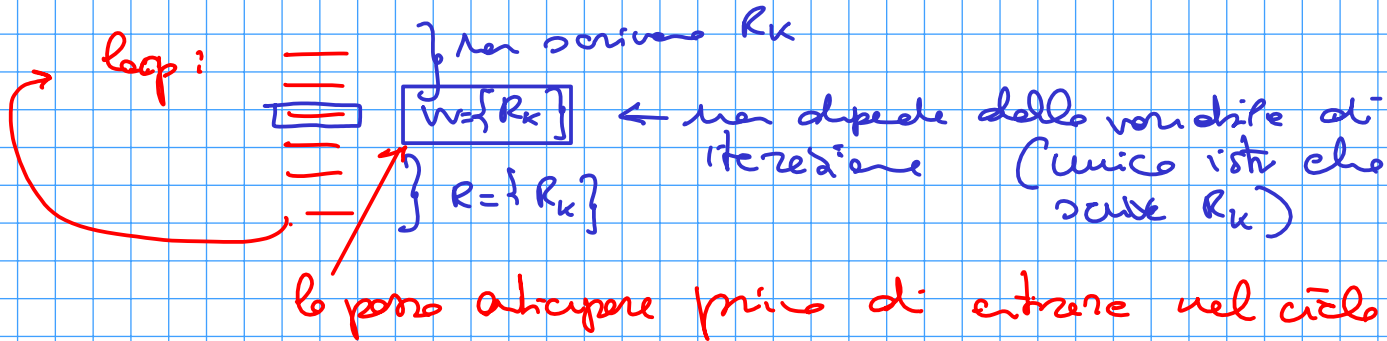 loop:
} non scrivono RK
W={RK} ← non dipende dalla variabile di
iterazione (unica istr che
scrive RK)
} R={RK}
lo posso anticipare prima di entrare nel ciclo